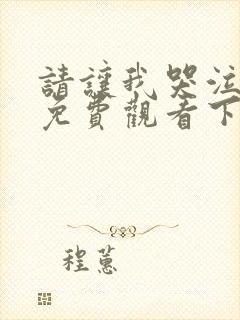 請讓我哭泣
免費觀看下
程蕙